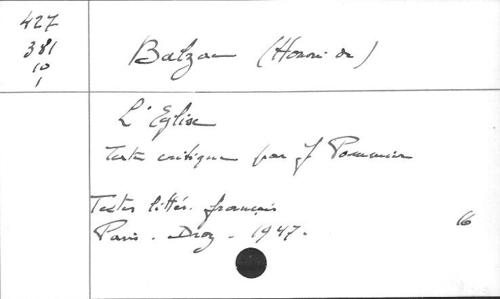 427
381
10
1
Balzac (Honoré de)
L'Eglise
Texte critique par J Pommier
Textes littér. français
Paris - Droz - 1947.
16